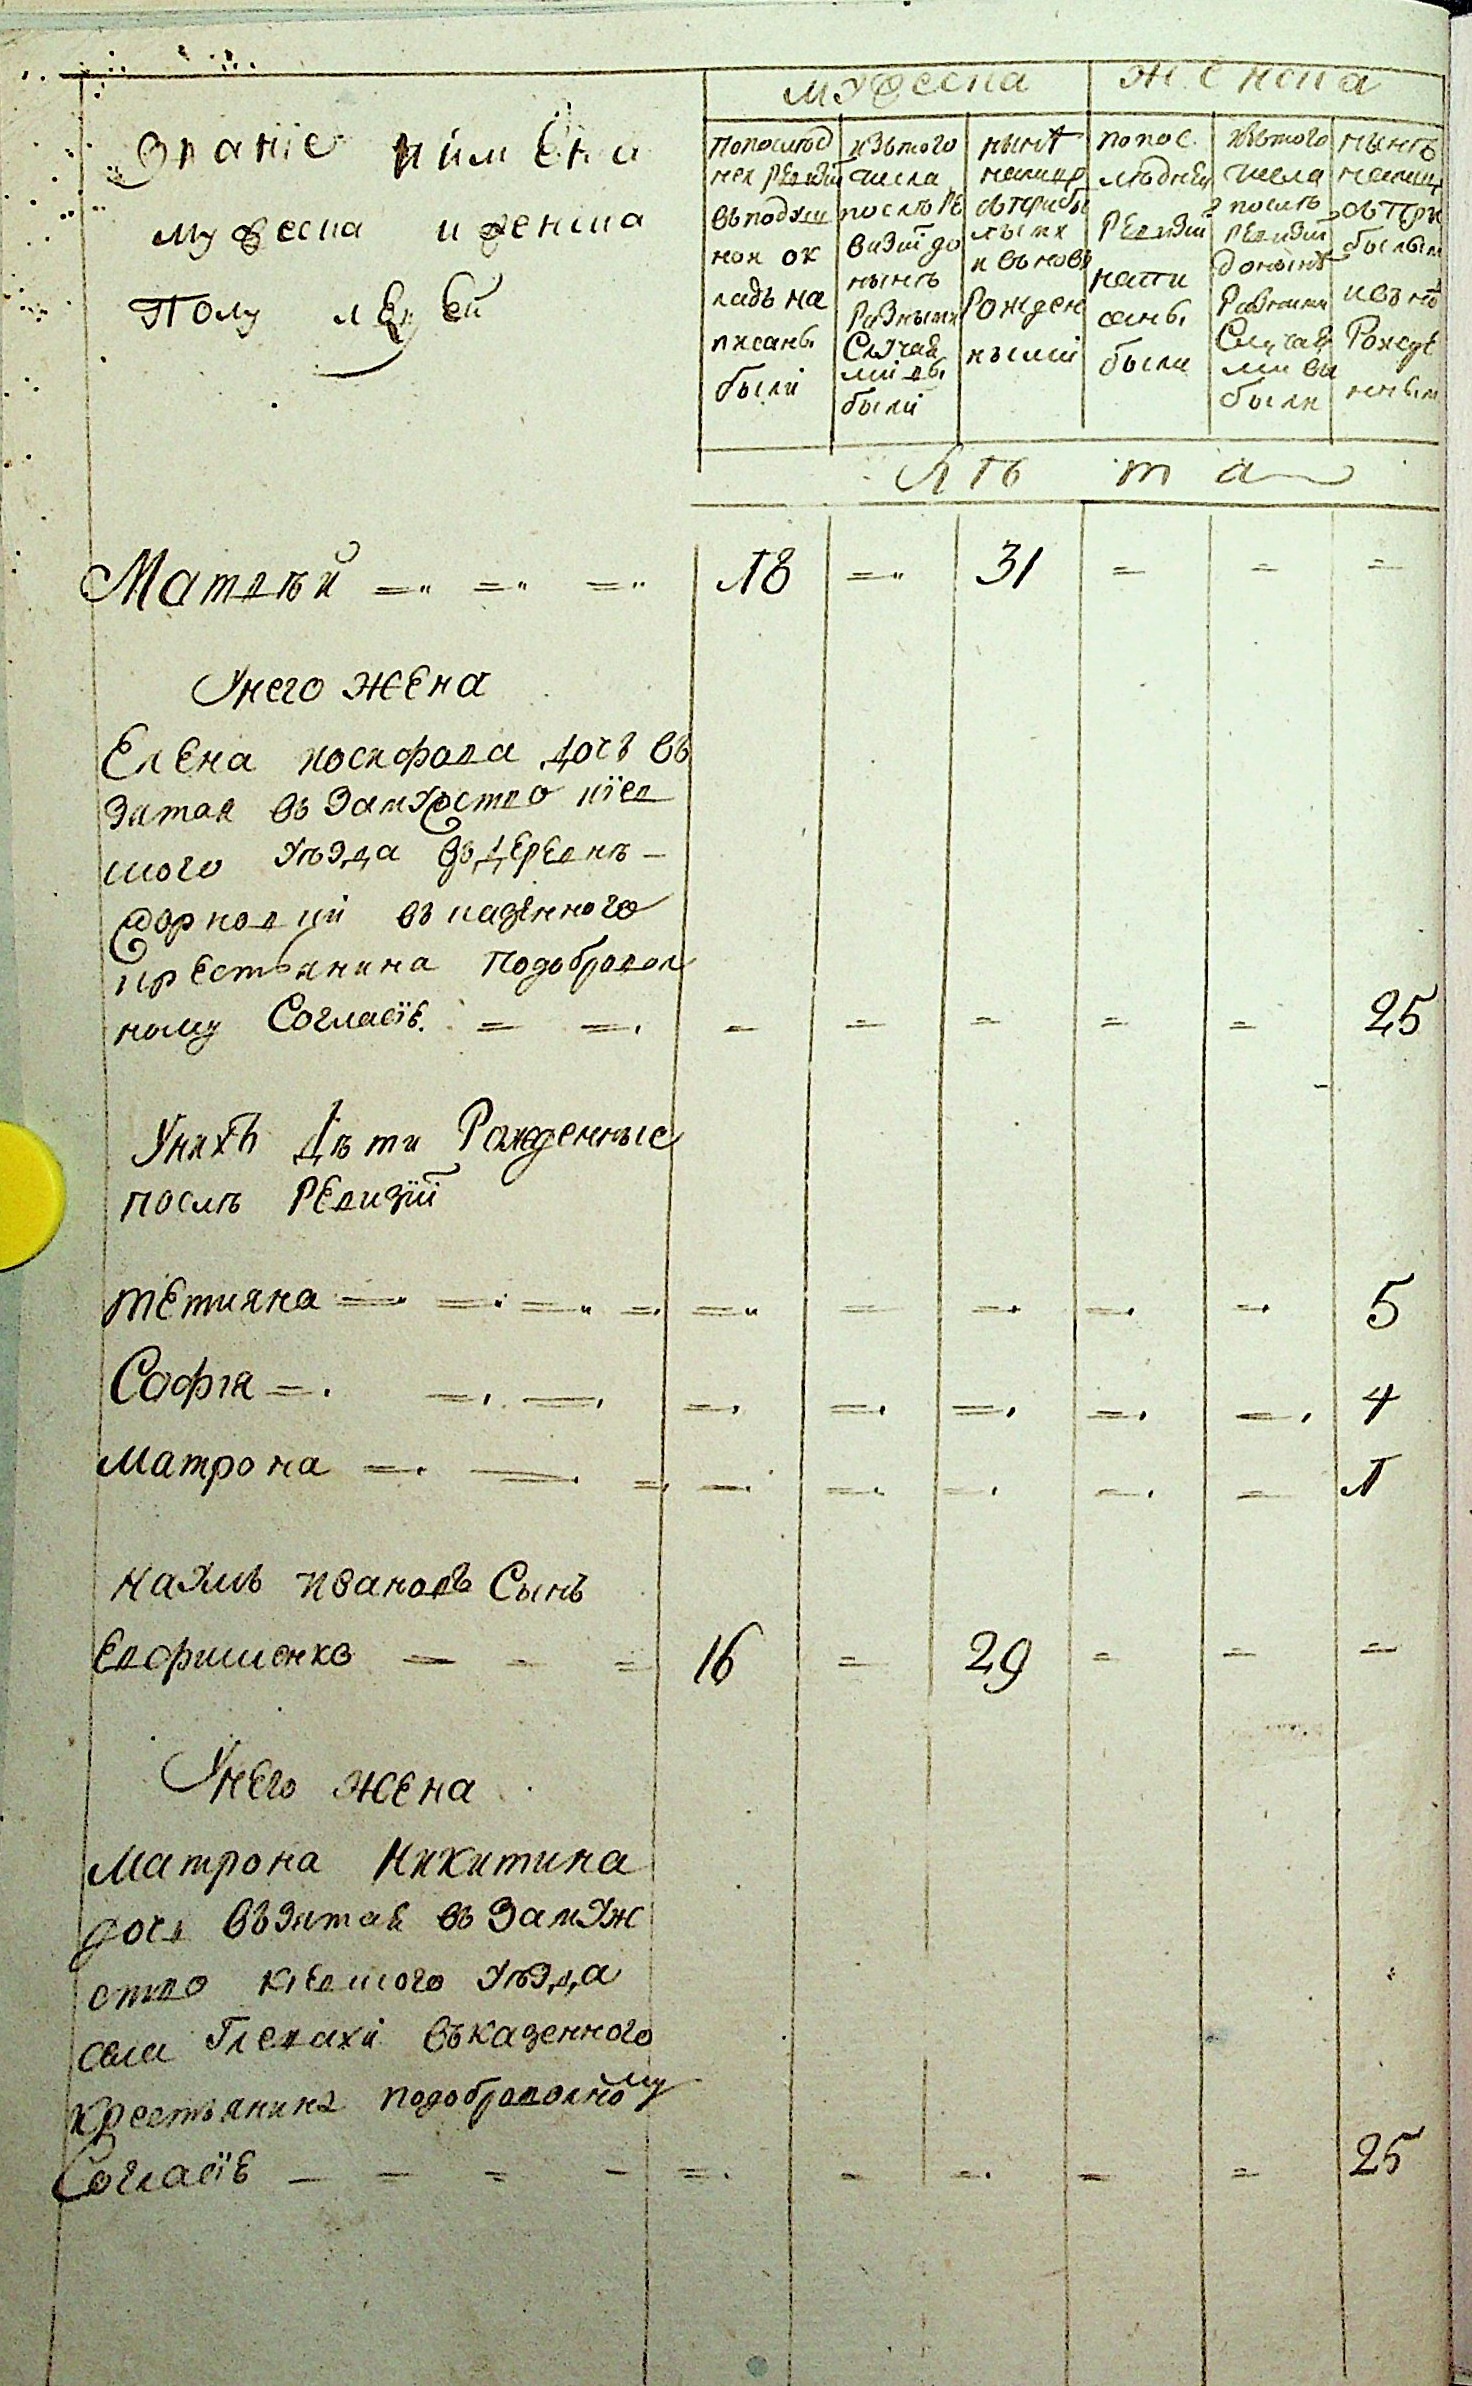 мужеска женска
Званіе иимена
мужеска иженска
Полу людей
попослѣд
ней ревизіи
въподуш
ной ок
ладъ на
писаны
были
изътого
числа
послѣ ре
визіи до
нынѣ
разными
Случая
ми вы
были
нынѣ
налицо
сътприбы
лыми
и вьновь
Рожден
ными
попос
лѣдней
Ревизіи
напи
саны
были
изътого
числа
послѣ
ревизіи
донынѣ
Разными
Случая
ми вы
были
нынѣ
налицо
сътпри
былыми
ивъно
Рожде
нными
Лѣта
Матвѣй 18 31
Унего жена
Елена иосифова дочъ въ
зятая въ Замужество кіев
ского Уѣзда въдеревнѣ
въ казенного
крестьянина Подобровол
ному Согласіе 25
Унихъ Дѣти Рожденные
послѣ Ревизіи
тетияна 5
Софія 4
Матрона 1
Наумъ ивановъ Сынъ
Евфименко 16 29
Унего жена
Матрона Никитина
дочь възятая въ Замуж
ство кіевского уѣзда
села Глевахи въказенного
крестьянина подобровольному
Согласіе 25